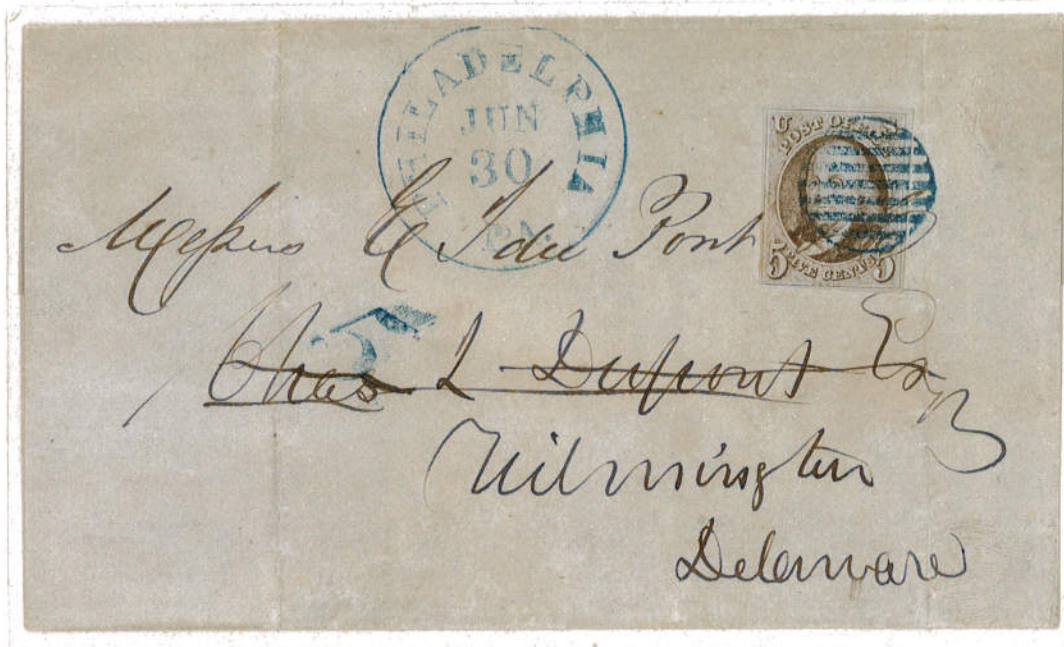 PHILADELPHIA
JUN
30
PA.
U
POST OFFICE
5 FIVE CENTS 5
Messrs E I du Pont
5
Chas I Dupont Esq
Wilmington
Delaware